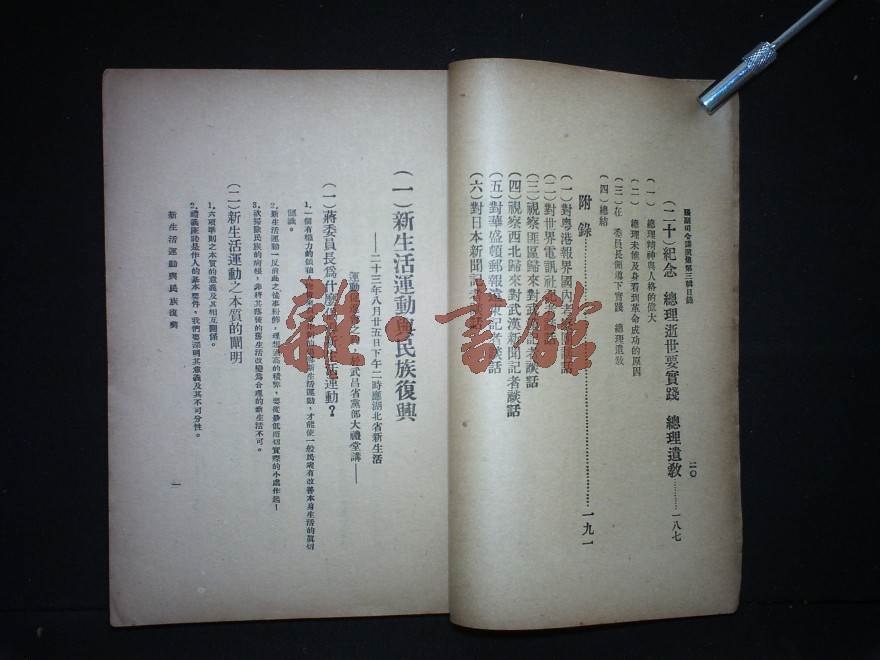 張副司令講演集第三輯目錄
二〇
(二十)紀念 總理逝世要實踐 總理遺敎…………一八七
(一) 總理精神與人格的偉大
(二) 總理未能及身看到革命成功的原因
(三)在 委員長領導下實踐 總理遺敎
(四)總結
附錄…………一九一
(一)對粵港報界國內考談話
(二)對世界電訊社話
(三)視察匪區歸來對武記者談話
(四)視察西北歸來對武漢新聞記者談話
(五)對華盛頓郵報遠東記者談話
(六)對日本新聞記話
(一)新生活運動與民族復興
——二十三年八月廿五日下午二時應湖北省新生活
運動促進武昌省黨部大禮堂講——
(一)蔣委員長爲什麼倡新生活運動?
1.一個有權力的領新生活運動,才能使一般民衆有改善本身生活的眞切
認識。
2.新生活運動一反前此之後事粉飾,理想過高的積弊,要從最低而切實際的小處作起!
3.欲掃除民族的病根,非將其落後的舊生活改變爲合理的新生活不可。
(二)新生活運動之本質的闡明
1.六項準則之本質的意義及其相互關係。
2.禮義廉恥是作人的基本要件,我們要深明其意義及其不可分性。
新生活運動與民族復興
一
雜·書館